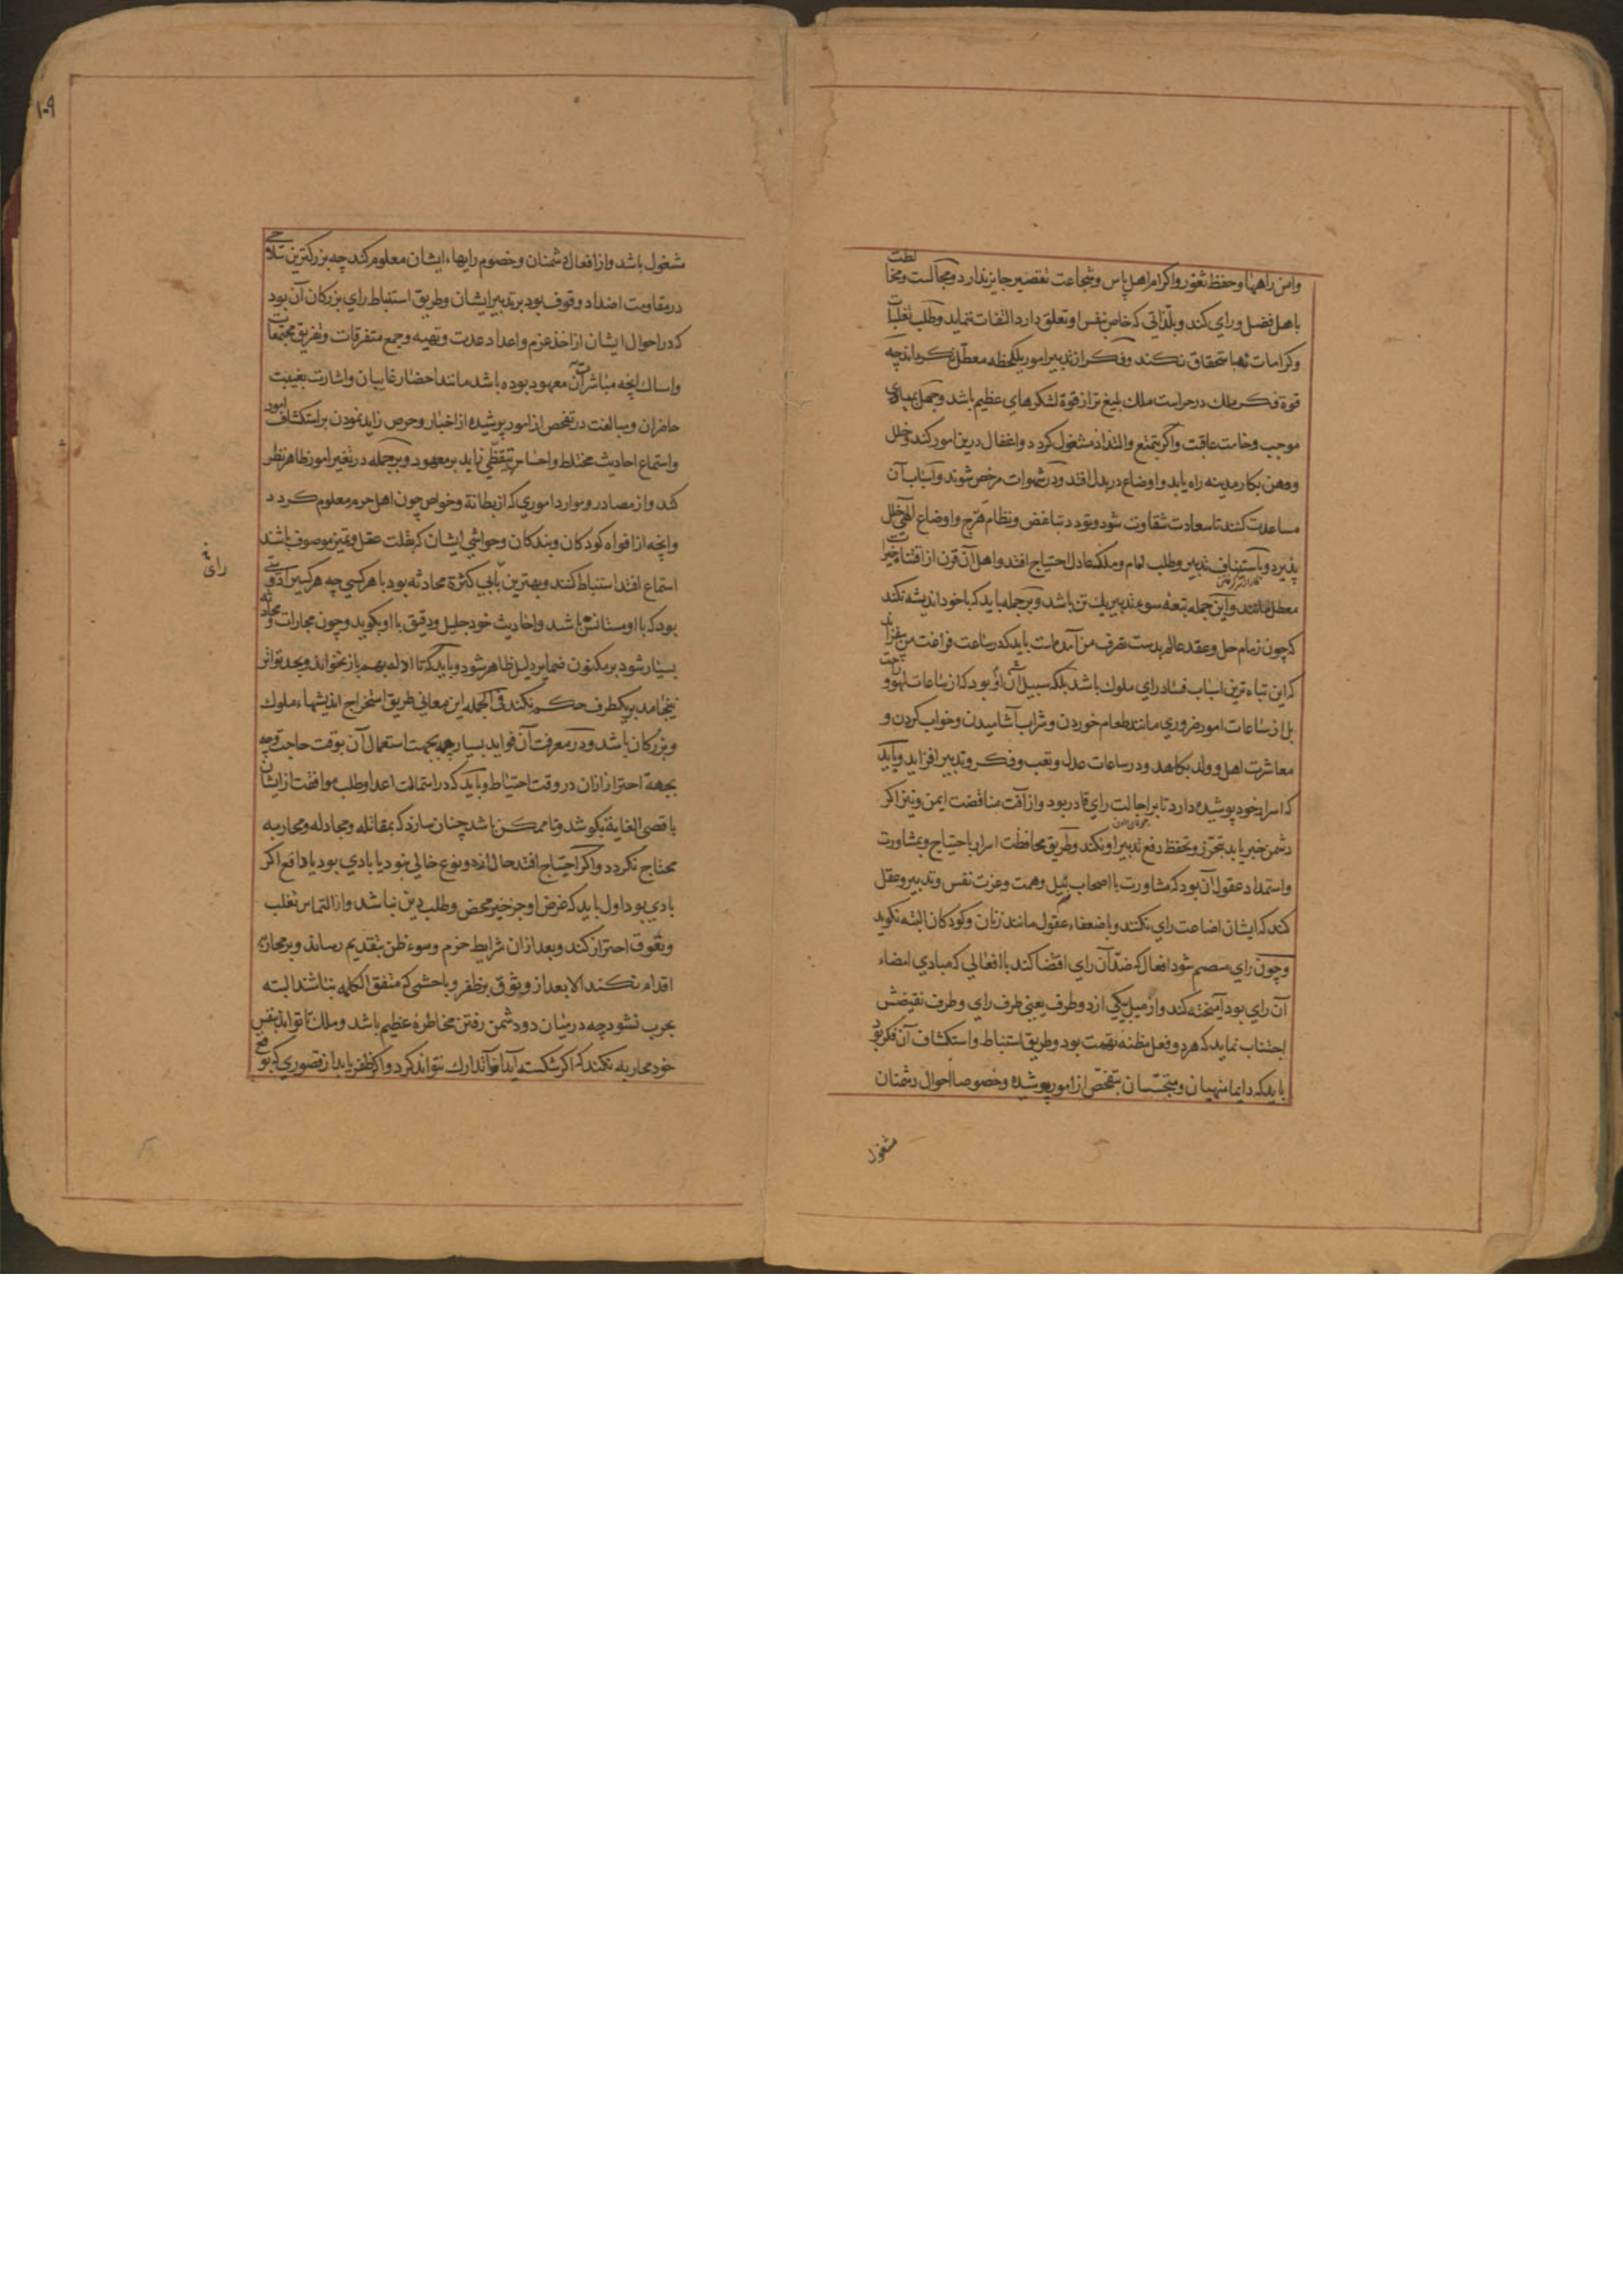 وامن راهها وحفظ ثغور واكرام اهل باس وشجاعت تقصير جايز ندارد ومجالست ومخالطت
باهل فضل وراي كند وبلذاتي كه خاص نفس او تعلق دارد التفات ننمايد وطلب تغلبات
وكرامات نه باستحقاق نكند وفكر از تدبير امور يكلحظه معطل نكرداند چه
قوة فكر ملك در حراست ملك بليغ تر از قوة لشكرهاي عظيم باشد وجهل بمبادي
موجب وخامت عاقبت واكر بتمتع والتذاذ مشغول كردد واغفال درين امور كند وخلل
ووهن بكار مدينه راه يابد واوضاع در بدل افتد ودر شهوات مرخص شوند واسباب آن
مساعدت كنند تا سعادت شقاوت شود وتودد تباغض ونظام هرج واوضاع الهي خلل
پذيرد وباستيناف تدبير وطلب امام وملك عادل احتياج افتد واهل آن قرن از اقتناء خيرات
معطل مانند واين جمله تبعه سوء تدبير يك تن باشد وبر جمله بايد كه با خود انديشه نكند
كه چون زمام حل وعقد عالم بدست تصرف من آمده است بايد كه در ساعت فراغت من بيفزايد
كه اين تباه ترين اسباب فساد راي ملوك باشد بلكه سبيل آن او بود كه از ساعات لهو وراحت
بل از ساعات امور ضروري مانند طعام خوردن وشراب آشاميدن وخواب كردن و
معاشرت اهل وولد بكاهد ودر ساعات عدل وتعب وفكر وتدبير افزايد وبايد
كه اسرار خود پوشيده دارد تا بر اجالت راي قادر بود واز آفت مناقضت ايمن ونيز اكر
دشمن خبر يابد بتحرز وتحفظ دفع تدبير او نكند وطريق محافظت اسرار با احتياج ومشاورت
واستمداد عقول آن بود كه مشاورت با اصحاب نبل وهمت وعزت نفس وتدبير وعقل
كند كه ايشان اضاعت راي نكنند وبا ضعفاء عقول مانند زنان وكودكان البته نكويد
وچون راي مصمم شود افعال كه ضد آن راي اقتضا كند با افعالي كه مبادي امضاء
آن راي بود آميخته كند واز ميل بيكي از دو طرف يعني طرف راي وطرف نقيضش
اجتناب نمايد كه هر دو فعل مظنه تهمت بود وطريق استنباط واستكشاف آن فكر بود
بايد كه دايما منهيان ومتجسسان بتفحص از امور پوشيده وخصوصا احوال دشمنان
مشغول
١٠٩
مشغول باشد واز افعال دشمنان وخصوم رايهاء ايشان معلوم كند چه بزركترين سلاحي
در مقاومت اضداد وقوف بود بر تدبير ايشان وطريق استنباط راي بزركان آن بود
كه در احوال ايشان از اخذ عزم واعداد عدت وتهيه وجمع متفرقات وتفريق مجتمعات
وامساك آنچه مباشرت آن معهود بوده باشد مانند احضار غايبان واشارت بغيبت
حاضران ومبالغت در تفحص از امور پوشيده از اخبار وحرص زايد نمودن بر استكشاف امور
واستماع احاديث مختلط واحساس تيقظي زايد بر معهود وبرجمله در تغير امور ظاهر نظر
كند واز مصادر وموارد اموري كه از بطانة وخواص چون اهل حرم معلوم كردد
وآنچه از افواه كودكان وبندكان وحواشي ايشان كه بقلت عقل وتميز موصوف باشند
استماع افتد استنباط كنند وبهترين بابي كثرة محادثه بود با هر كسي چه هر كسيرا دوستي
بود كه با او مستانس باشد واحاديث خود جليل ودقيق با او بكويد وچون مجارات ومحادثه
بسيار شود بر مكنون ضماير دليل ظاهر شود وبايد كه تا ادله بهم باز نخواند وبحد تواتر
نينجامد بر يكطرف حكم نكند في الجمله اين معاني طريق استخراج انديشهاء ملوك
وبزركان باشد ودر معرفت آن فوايد بسيار چه بجهت استعمال آن بوقت حاجت وچه
بجهة احتراز ازان در وقت احتياط وبايد كه در استمالت اعدا وطلب موافقت از ايشان
باقصى الغاية بكوشد وتا ممكن باشد چنان سازد كه بمقاتله ومجادله ومحاربه
محتاج نكردد واكر احتياج افتد حال از دو نوع خالي نبود يا بادي بود يا دافع اكر
بادي بود اول بايد كه غرض او جز خير محض وطلب دين نباشد واز التماس تغلب
وتفوق احتراز كند وبعد ازان شرايط حزم وسوء ظن بتقديم رساند وبر محاربه
اقدام نكند الا بعد از وثوق بر ظفر وبا حشمي كه متفق الكلمه نباشند البته
بحرب نشود چه در ميان دو دشمن رفتن مخاطرهٔ عظيم باشد وملك تا تواند بنفس
خود محاربه نكند كه اكر شكسته آيد آنرا تدارك نتواند كرد واكر ظفر يابد از قصوري كه بوقع